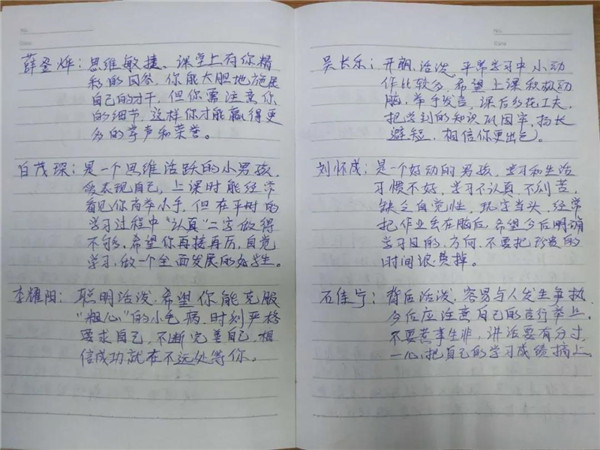 薛圣烨：思维敏捷、课堂上有你精
彩的回答，你能大胆地施展
自己的才干，但你需注意你
的细节，这样你才能赢得更
多的掌声和荣誉。
白茂琛：是一个思维活跃的小男孩，
爱表现自己，上课时能经常
看见你高举小手，但在平时的
学习过程中“认真”二字做得
不够，希望你再接再厉，自觉
学习，做一个全面发展的好学生。
李耀阳：聪明活泼，希望你能克服
“粗心”的小毛病，时刻严格
要求自己，不断完善自己，相
信成功就在不远处等你。
吴长乐：开朗、活泼，平常学习中小动
作比较多，希望上课积极动
脑，举手发言，课后多花工夫，
把学到的知识巩固牢，扬长
避短，相信你更出色。
刘怀成：是个好动的男孩，学习和生活
习惯不好，学习不认真、不刻苦，
缺乏自觉性，玩字当头，经常
把作业丢在脑后，希望今后明确
学习目的、方向，不要把珍贵的
时间浪费掉。
石佳宁：背后活泼，容易与人发生争执，
今后应注意自己的言行举止，
不要惹事生非，讲话要有分寸，
一心把自己的学习成绩搞上